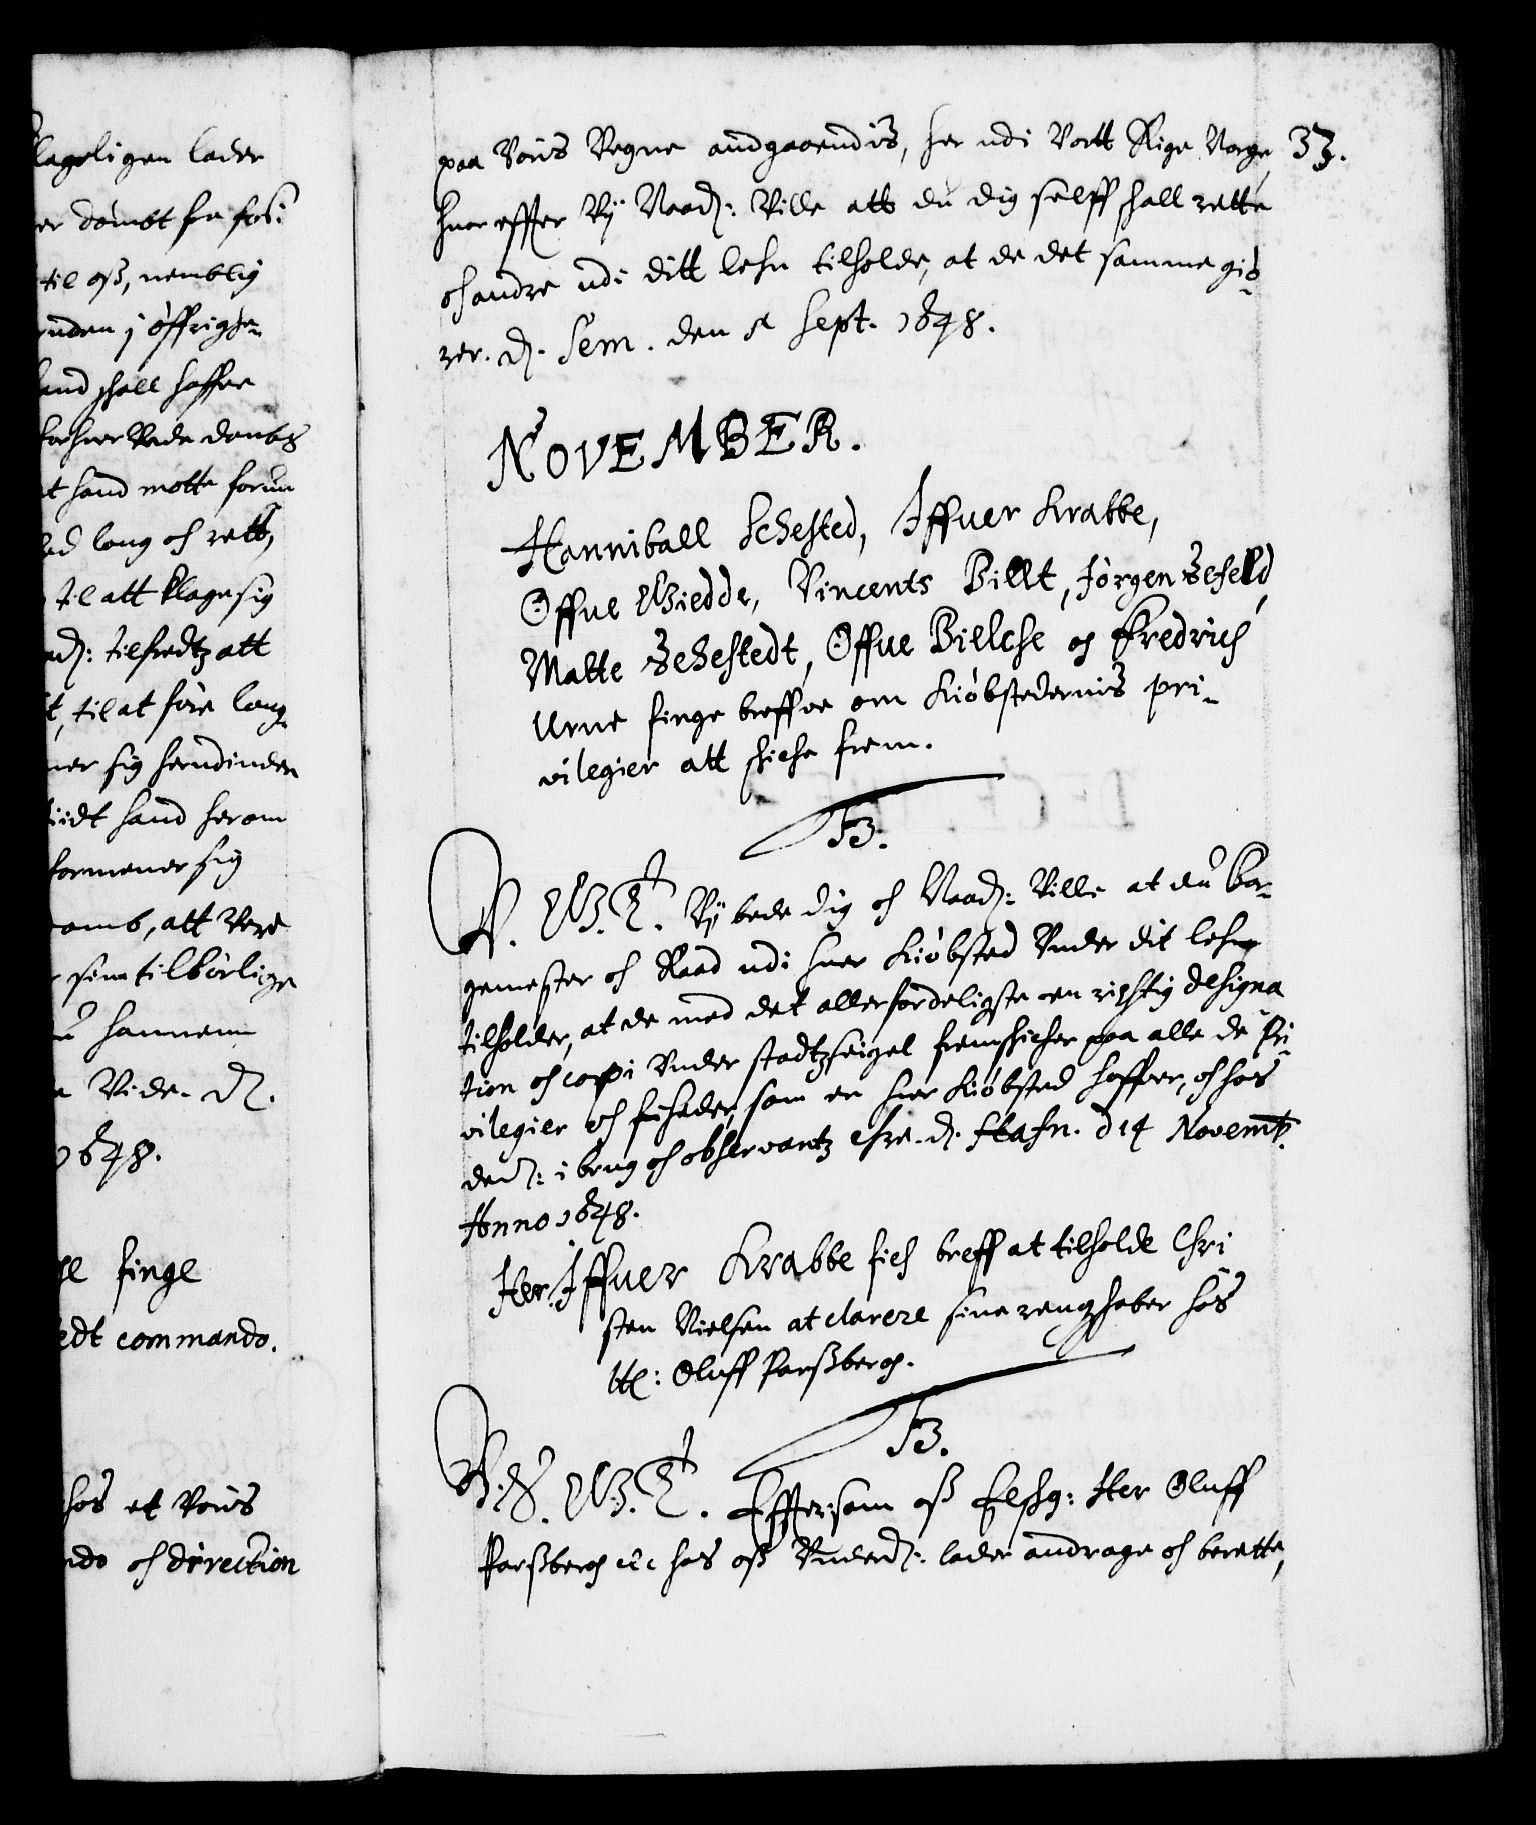 lageligen lader
er dömbt fra fosi
til oss, nemblig
runden i öffrighe-
hand schall haffue
forhuer Rede dombs
at hand motte forun
ved loug och rett,
til att klage sig
nad: tilfredtz att
t, til at före loug
ner sig herudinden
tiidt hand herom
formener sig
somb, att vere
r sine tilbörlige
hannem
Vide. D.
1648.
finge
edt commando.
hos et Voris
ndo och direction
paa Voris Vegne andgaaendis, her udi Vortt Rige Norge, 33.
huor effter Vij Naad: Ville att du dig selff schall rette
och andre udi ditt lehn tilholde, at de det samme giö-
rer. D. Sem. den 5 Sept. 1648.
NOVEMBER.
Hanniball Sehested, Iffuer Krabbe,
Offue Giedde, Vincents Billt, Jörgen Sefeld,
Malte Sehestedt, Offue Bielche og Fredrich
Urne finge breffue om Kiöbstedernis pri-
vilegier att schiche frem.
C4.
W. G. T. Vij bede dig och Naad: Ville at du Bor-
gemester och Raad udi huer Kiöbsted Vnder dit lehn
tilholder, at de med det allerforderligste een richtig designa
tion och copi Vnder stadtzseigel fremschicher paa alle de Pri
vilegier och friheder, som en huer Kiöbsted haffuer, och hos
dennem: i brug och observantz ehre. D. Hafn. d 14 Novemb.
Anno 1648.
Her Iffuer Krabbe fich breff at tilholde Chri
sten Nielsen at clarere sine rengschaber hos
Hr: Oluff Parssberg.
C4.
W. G. T. Effter som oss Elschg: Her Oluff
Parssberg etc hos oss Vnderd: lader andrage och berette,